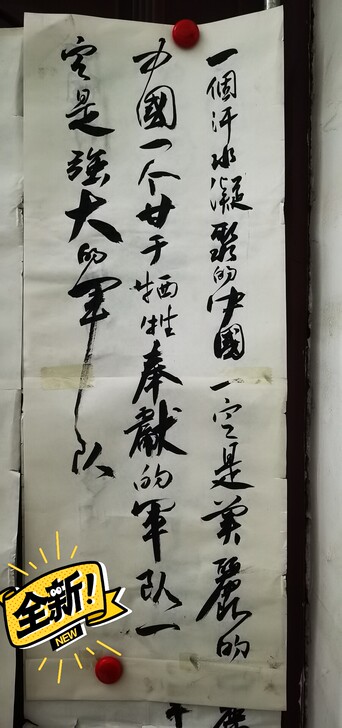 一個汗水凝聚的中國一定是美麗的
中國一个甘于牺牲奉獻的軍队一
定是強大的軍队
全新!
NEW